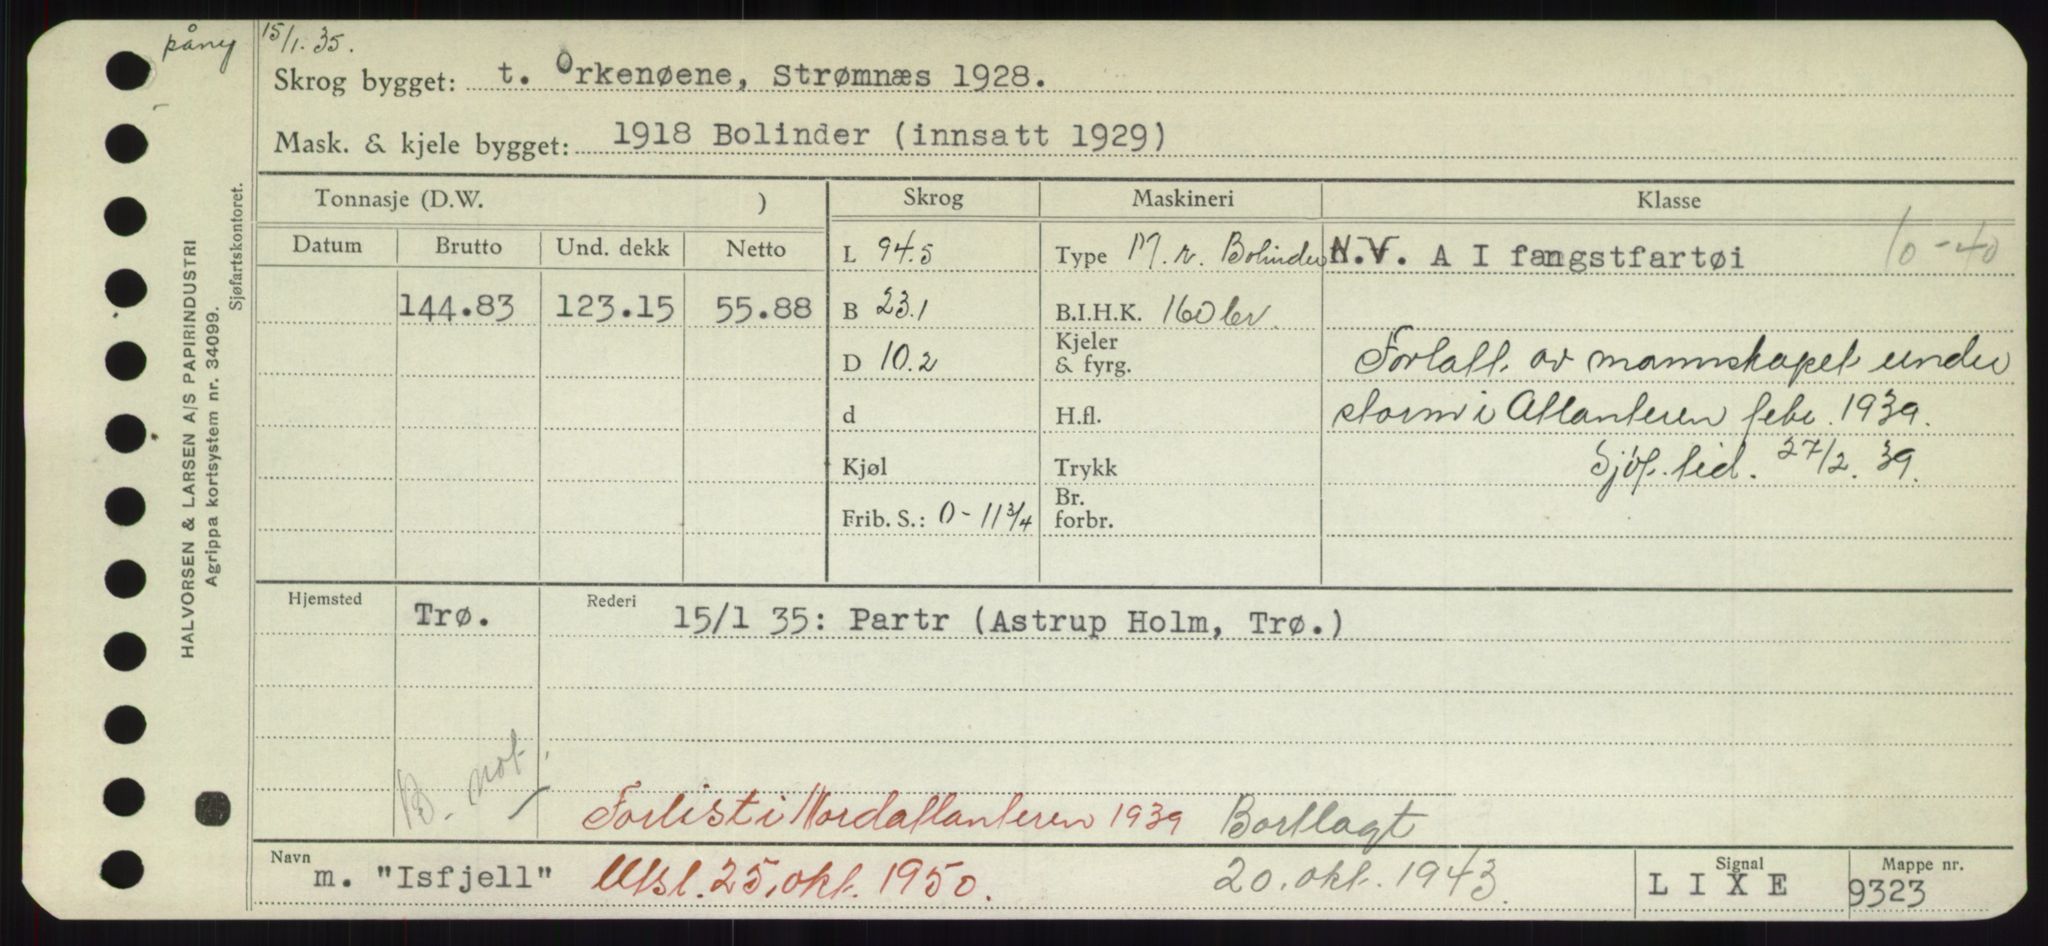 påny 15/1.35.
Skrog bygget: t. Orkenøene, Strømnæs 1928.
Mask. & kjele bygget: 1918 Bolinder (innsatt 1929)
HALVORSEN & LARSEN A/S PAPIRINDUSTRI
Agrippa kortsystem nr. 34099.
Sjøfartskontoret.
Tonnasje (D.W. ) Skrog Maskineri Klasse
Datum Brutto Und. dekk Netto L 94.5 Type M. v. Bolinder N.V. A I fangstfartøi 10-40
144.83 123.15 55.88 B 23.1 B.I.H.K. 160 bv.
D 10.2 Kjeler & fyrg. Forlatt av mannskapet under
d H.fl. storm i Atlanteren febr. 1939.
Kjøl Trykk Sjöf. tid. 27/2. 39.
Frib. S.: 0-11 3/4 Br. forbr.
Hjemsted Trø. Rederi 15/1 35: Partr (Astrup Holm, Trø.)
B. not.
Forlist i Nordatlanteren 1939 Bortlagt
Navn m. "Isfjell" Utsl. 25. okt. 1950. 20. okt. 1943. Signal L I X E Mappe nr. 9323